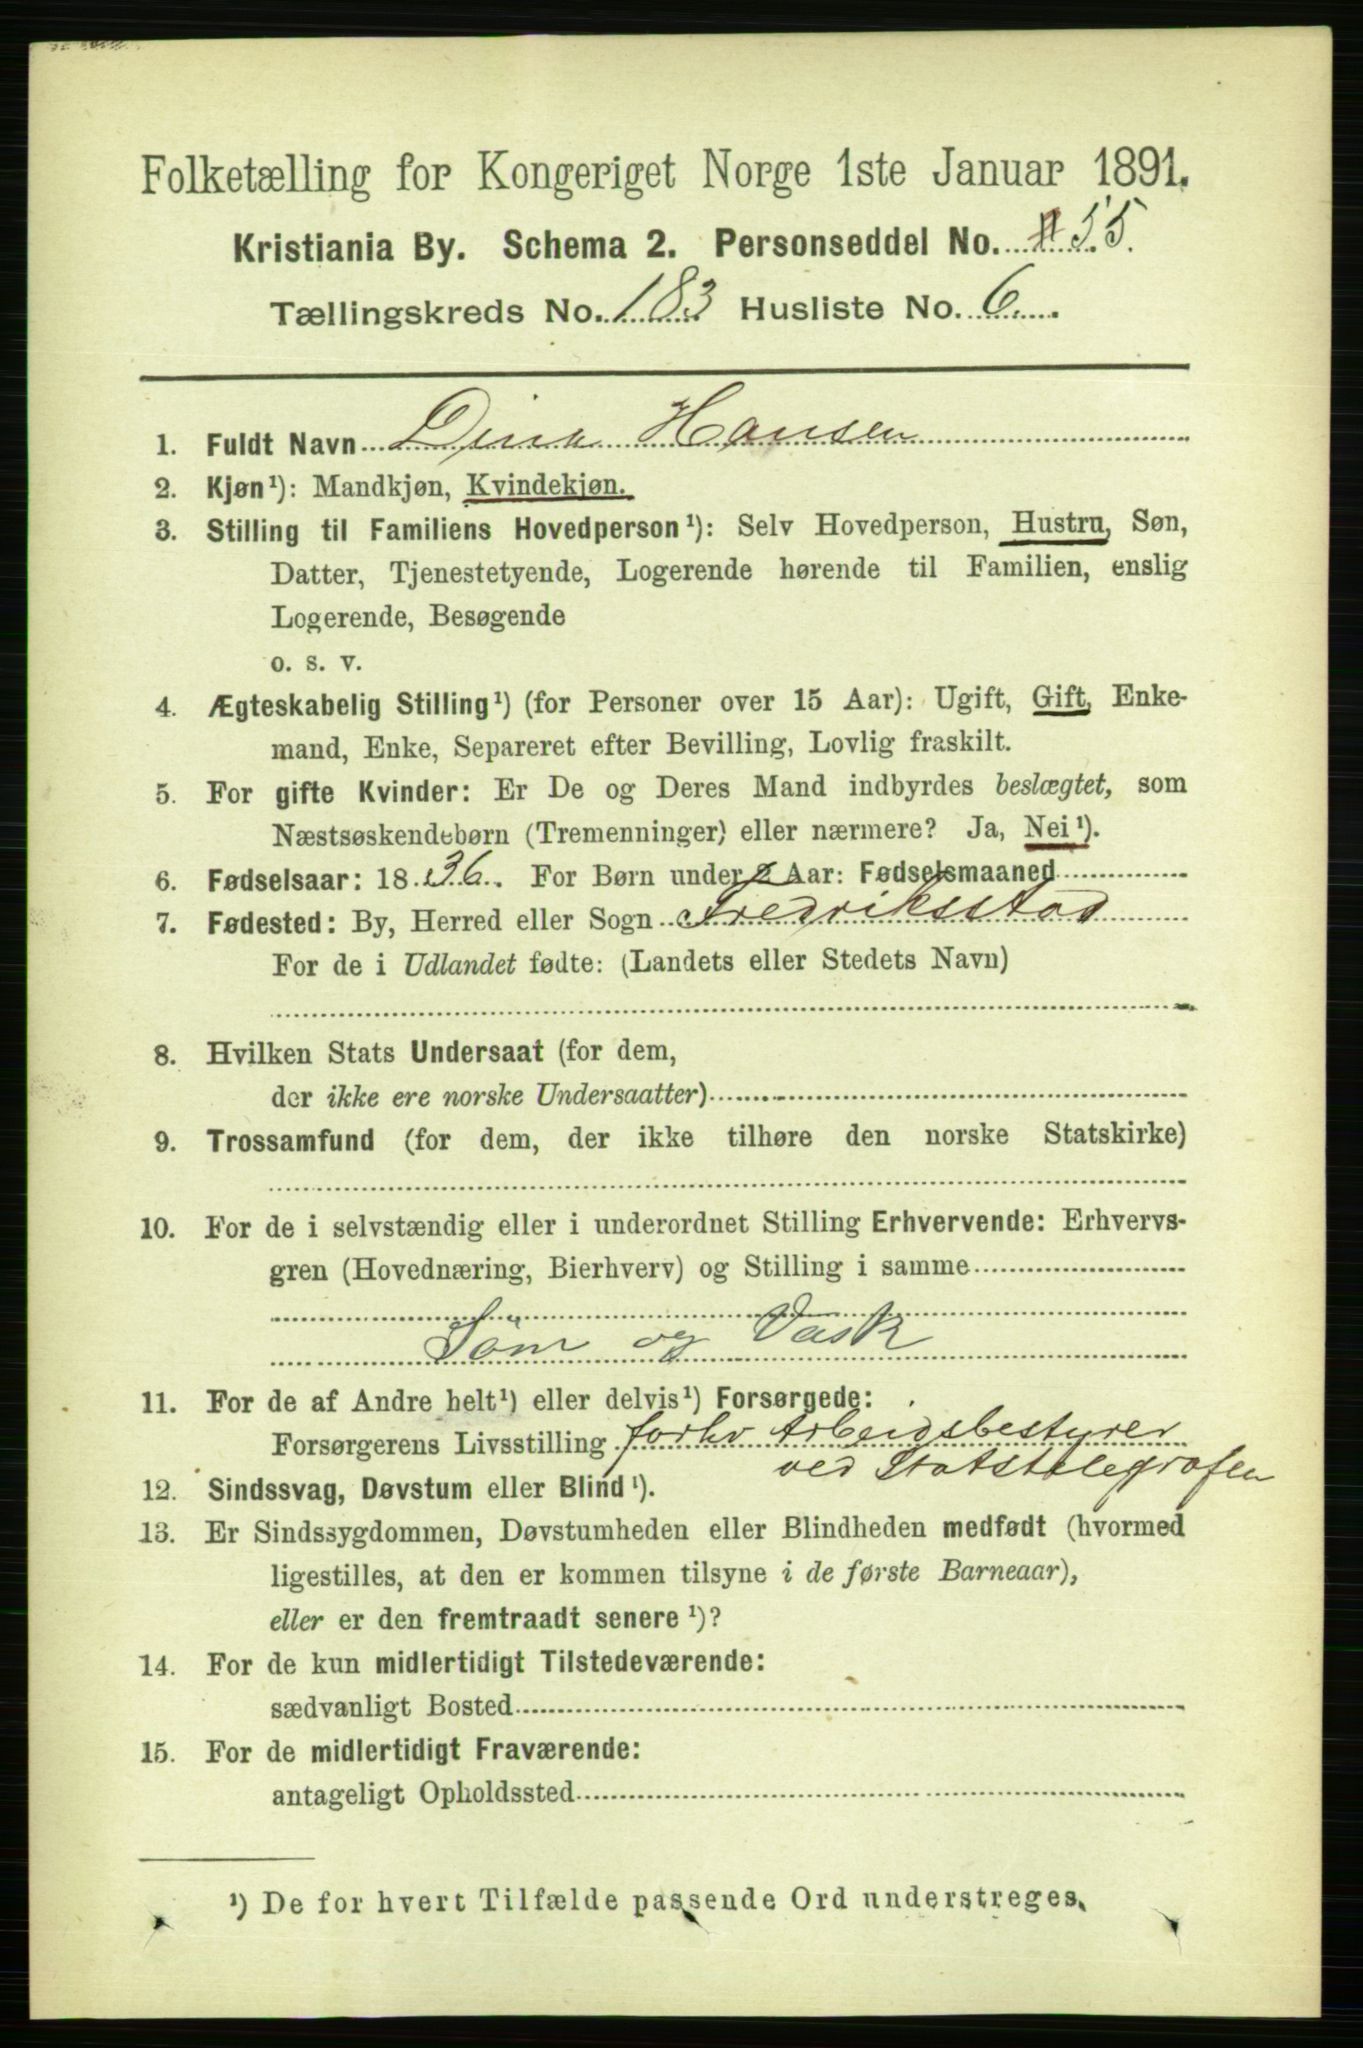 Folketælling for Kongeriget Norge 1ste Januar 1891.
Kristiania By. Schema 2. Personseddel No. 55.
Tællingskreds No. 183 Husliste No. 6.
1. Fuldt Navn Dina Hansen
2. Kjøn¹): Mandkjøn, Kvindekjøn.
3. Stilling til Familiens Hovedperson¹): Selv Hovedperson, Hustru, Søn,
Datter, Tjenestetyende, Logerende hørende til Familien, enslig
Logerende, Besøgende
o. s. v.
4. Ægteskabelig Stilling¹) (for Personer over 15 Aar): Ugift, Gift, Enke-
mand, Enke, Separeret efter Bevilling, Lovlig fraskilt.
5. For gifte Kvinder: Er De og Deres Mand indbyrdes beslægtet, som
Næstsøskendebørn (Tremenninger) eller nærmere? Ja, Nei¹).
6. Fødselsaar: 1836. For Børn under 2 Aar: Fødselsmaaned
7. Fødested: By, Herred eller Sogn Fredriksstad
For de i Udlandet fødte: (Landets eller Stedets Navn)
8. Hvilken Stats Undersaat (for dem,
der ikke ere norske Undersaatter)
9. Trossamfund (for dem, der ikke tilhøre den norske Statskirke)
10. For de i selvstændig eller i underordnet Stilling Erhvervende: Erhvervs-
gren (Hovednæring, Bierhverv) og Stilling i samme
Söm og Vask
11. For de af Andre helt¹) eller delvis¹) Forsørgede:
Forsørgerens Livsstilling forhv Arbeidsbestyrer
ved Statstelegrafen
12. Sindssvag, Døvstum eller Blind¹).
13. Er Sindssygdommen, Døvstumheden eller Blindheden medfødt (hvormed
ligestilles, at den er kommen tilsyne i de første Barneaar),
eller er den fremtraadt senere¹)?
14. For de kun midlertidigt Tilstedeværende:
sædvanligt Bosted
15. For de midlertidigt Fraværende:
antageligt Opholdssted
¹) De for hvert Tilfælde passende Ord understreges.